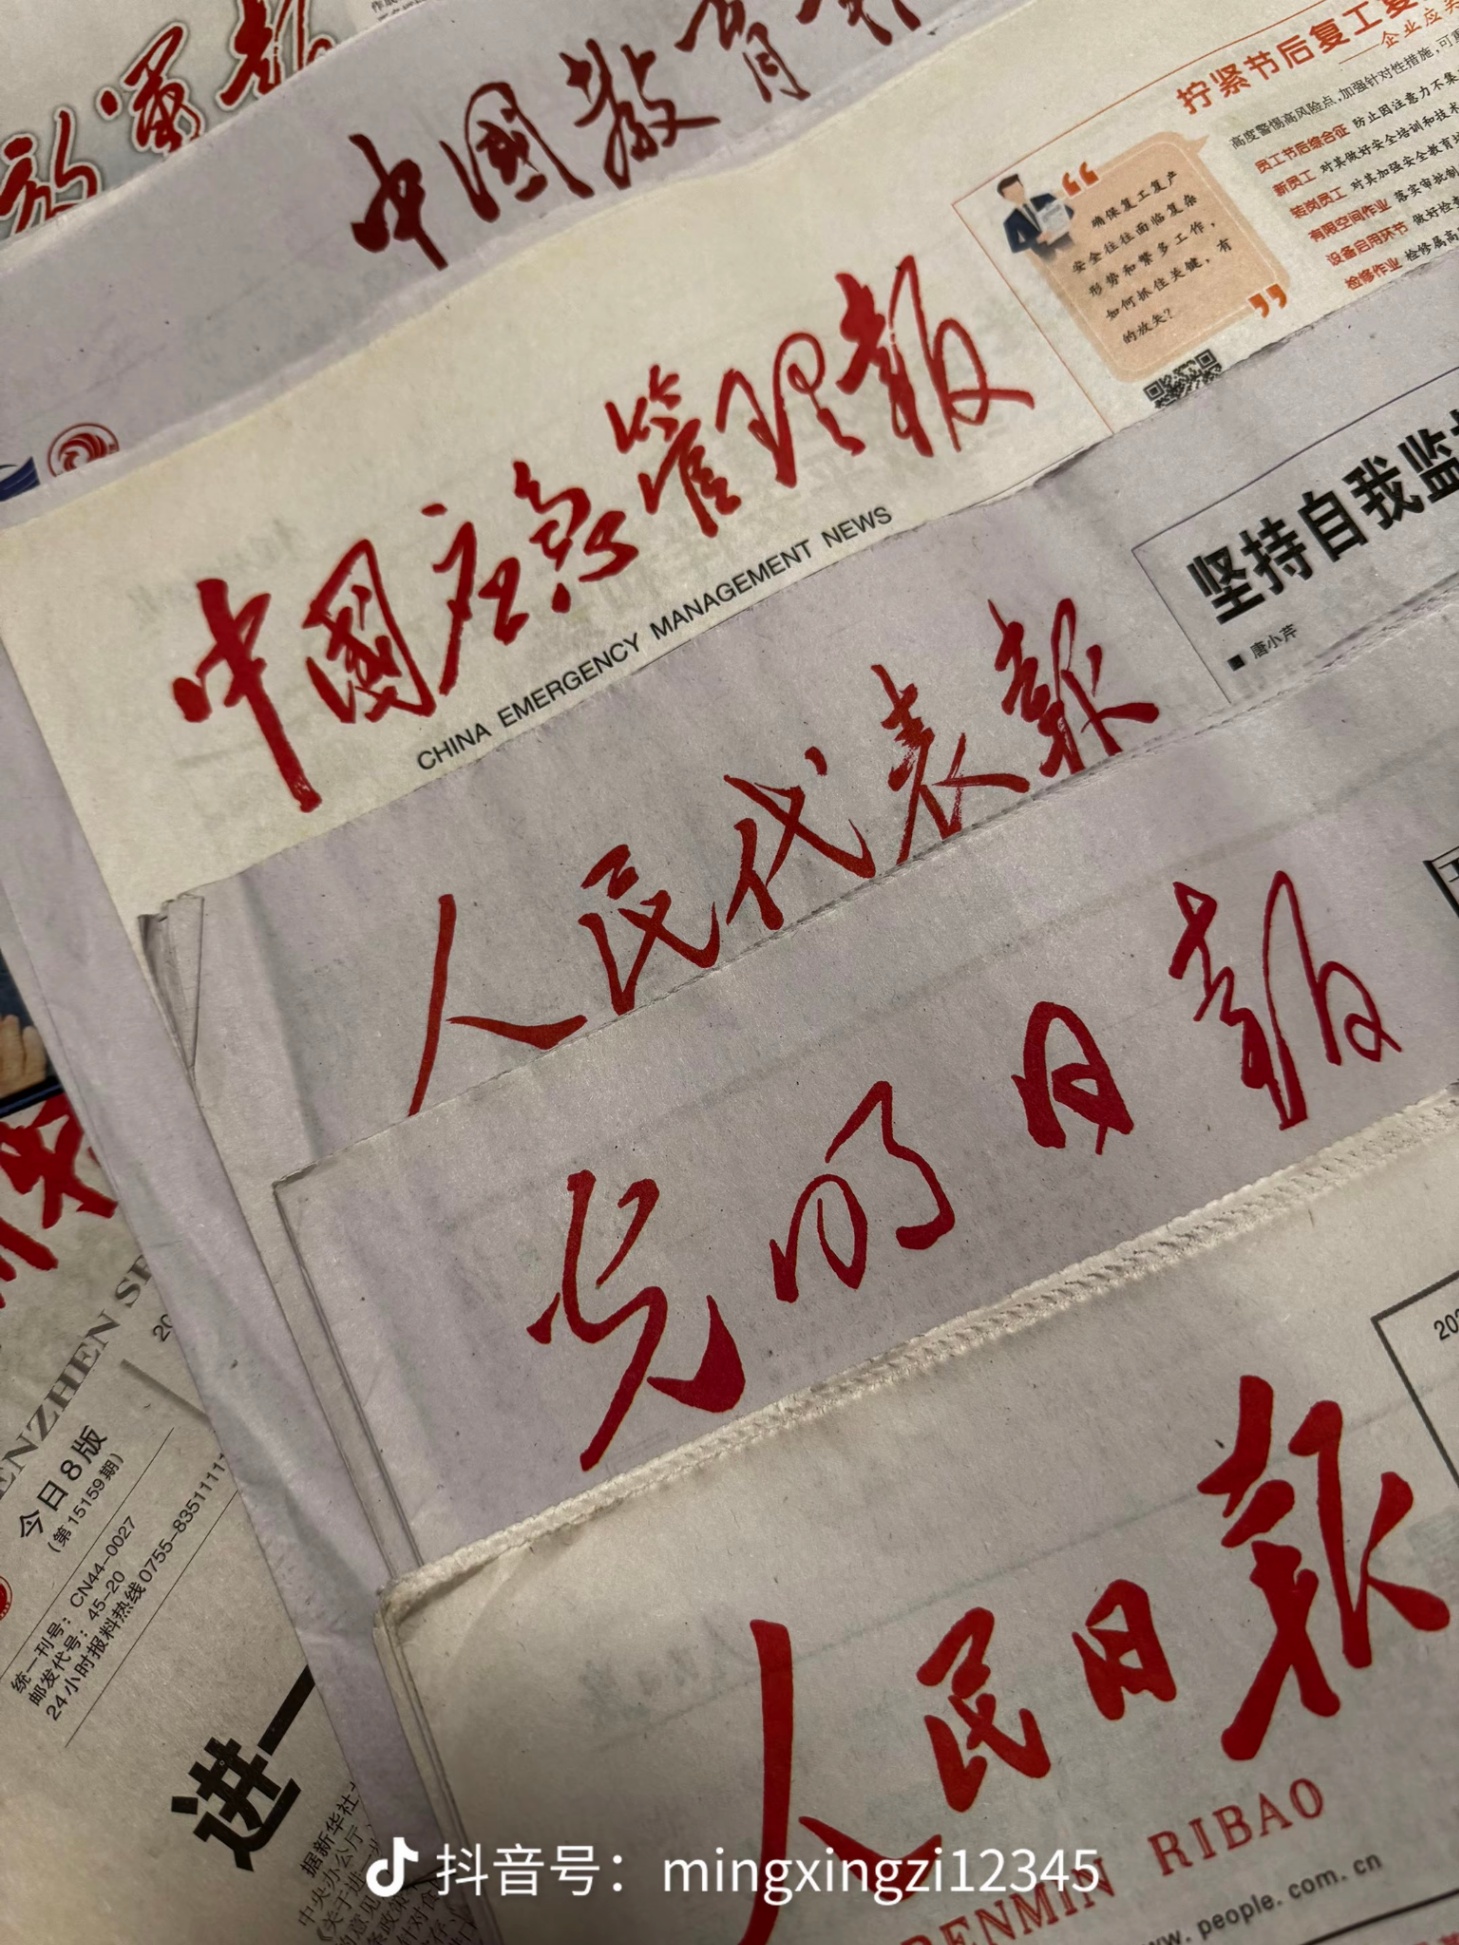 中国教育报
拧紧节后复工复
企业应关
高度警惕高风险点,加强针对性措施,可
员工节后综合征 防止因注意力不集
新员工 对其做好安全培训和技术
转岗员工 对其加强安全教育培
有限空间作业 落实审批制
设备启用环节 做好检查
检修作业 检修属高
确保复工复产
安全往往面临复杂
形势和繁多工作,
如何抓住关键,有
的放矢?
中国应急管理报
CHINA EMERGENCY MANAGEMENT NEWS
坚持自我监
■ 唐小芹
人民代表報
光明日報
人民日報
RENMIN RIBAO
www.people.com.cn
ENZHEN SP
今日8版
(第15159期)
统一刊号:CN44-0027
邮发代号:45-20
24小时报料热线0755-8351111
进一
据新华社
中央办公厅
《关于进一
抖音号:mingxingzi12345